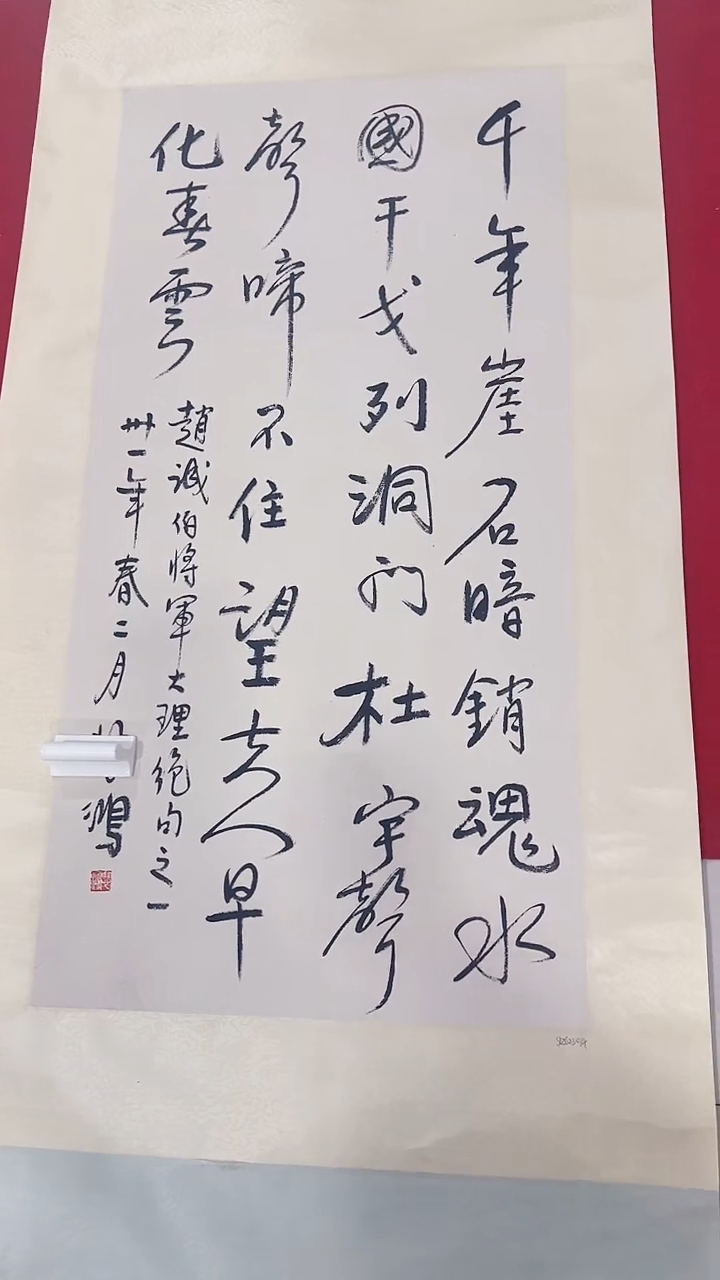 千年崖石暗銷魂水
國干戈列洞門杜宇聲
聲啼不住望夫人早
化春雲
趙誠伯將軍大理絶句之一
卅一年春二月 鴻